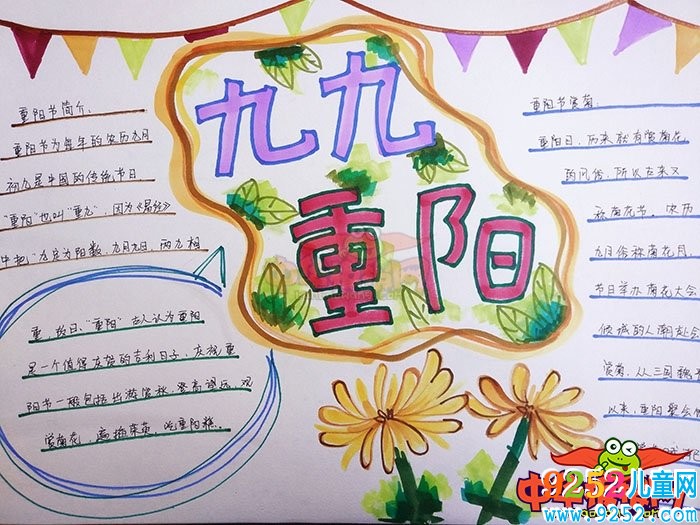 九九
重阳
重阳节简介:
重阳节为每年的农历九月
初九是中国的传统节日
"重阳"也叫"重九",因为《易经》
中把"九"定为阳数,九月九日,两九相
重,故曰:"重阳"古人认为重阳
是一个值得庆贺的吉利日子,庆祝重
阳节一般包括出游赏秋,登高望远,观
赏菊花,遍插茱萸,吃重阳糕。
重阳节赏菊:
重阳日,历来就有赏菊花
的风俗,所以古来又
称菊花节。农历
九月俗称菊花月,
节日举办菊花大会
倾城的人潮赴会
赏菊,从三国
以来,重阳聚会
9252儿童网
www.9252.com